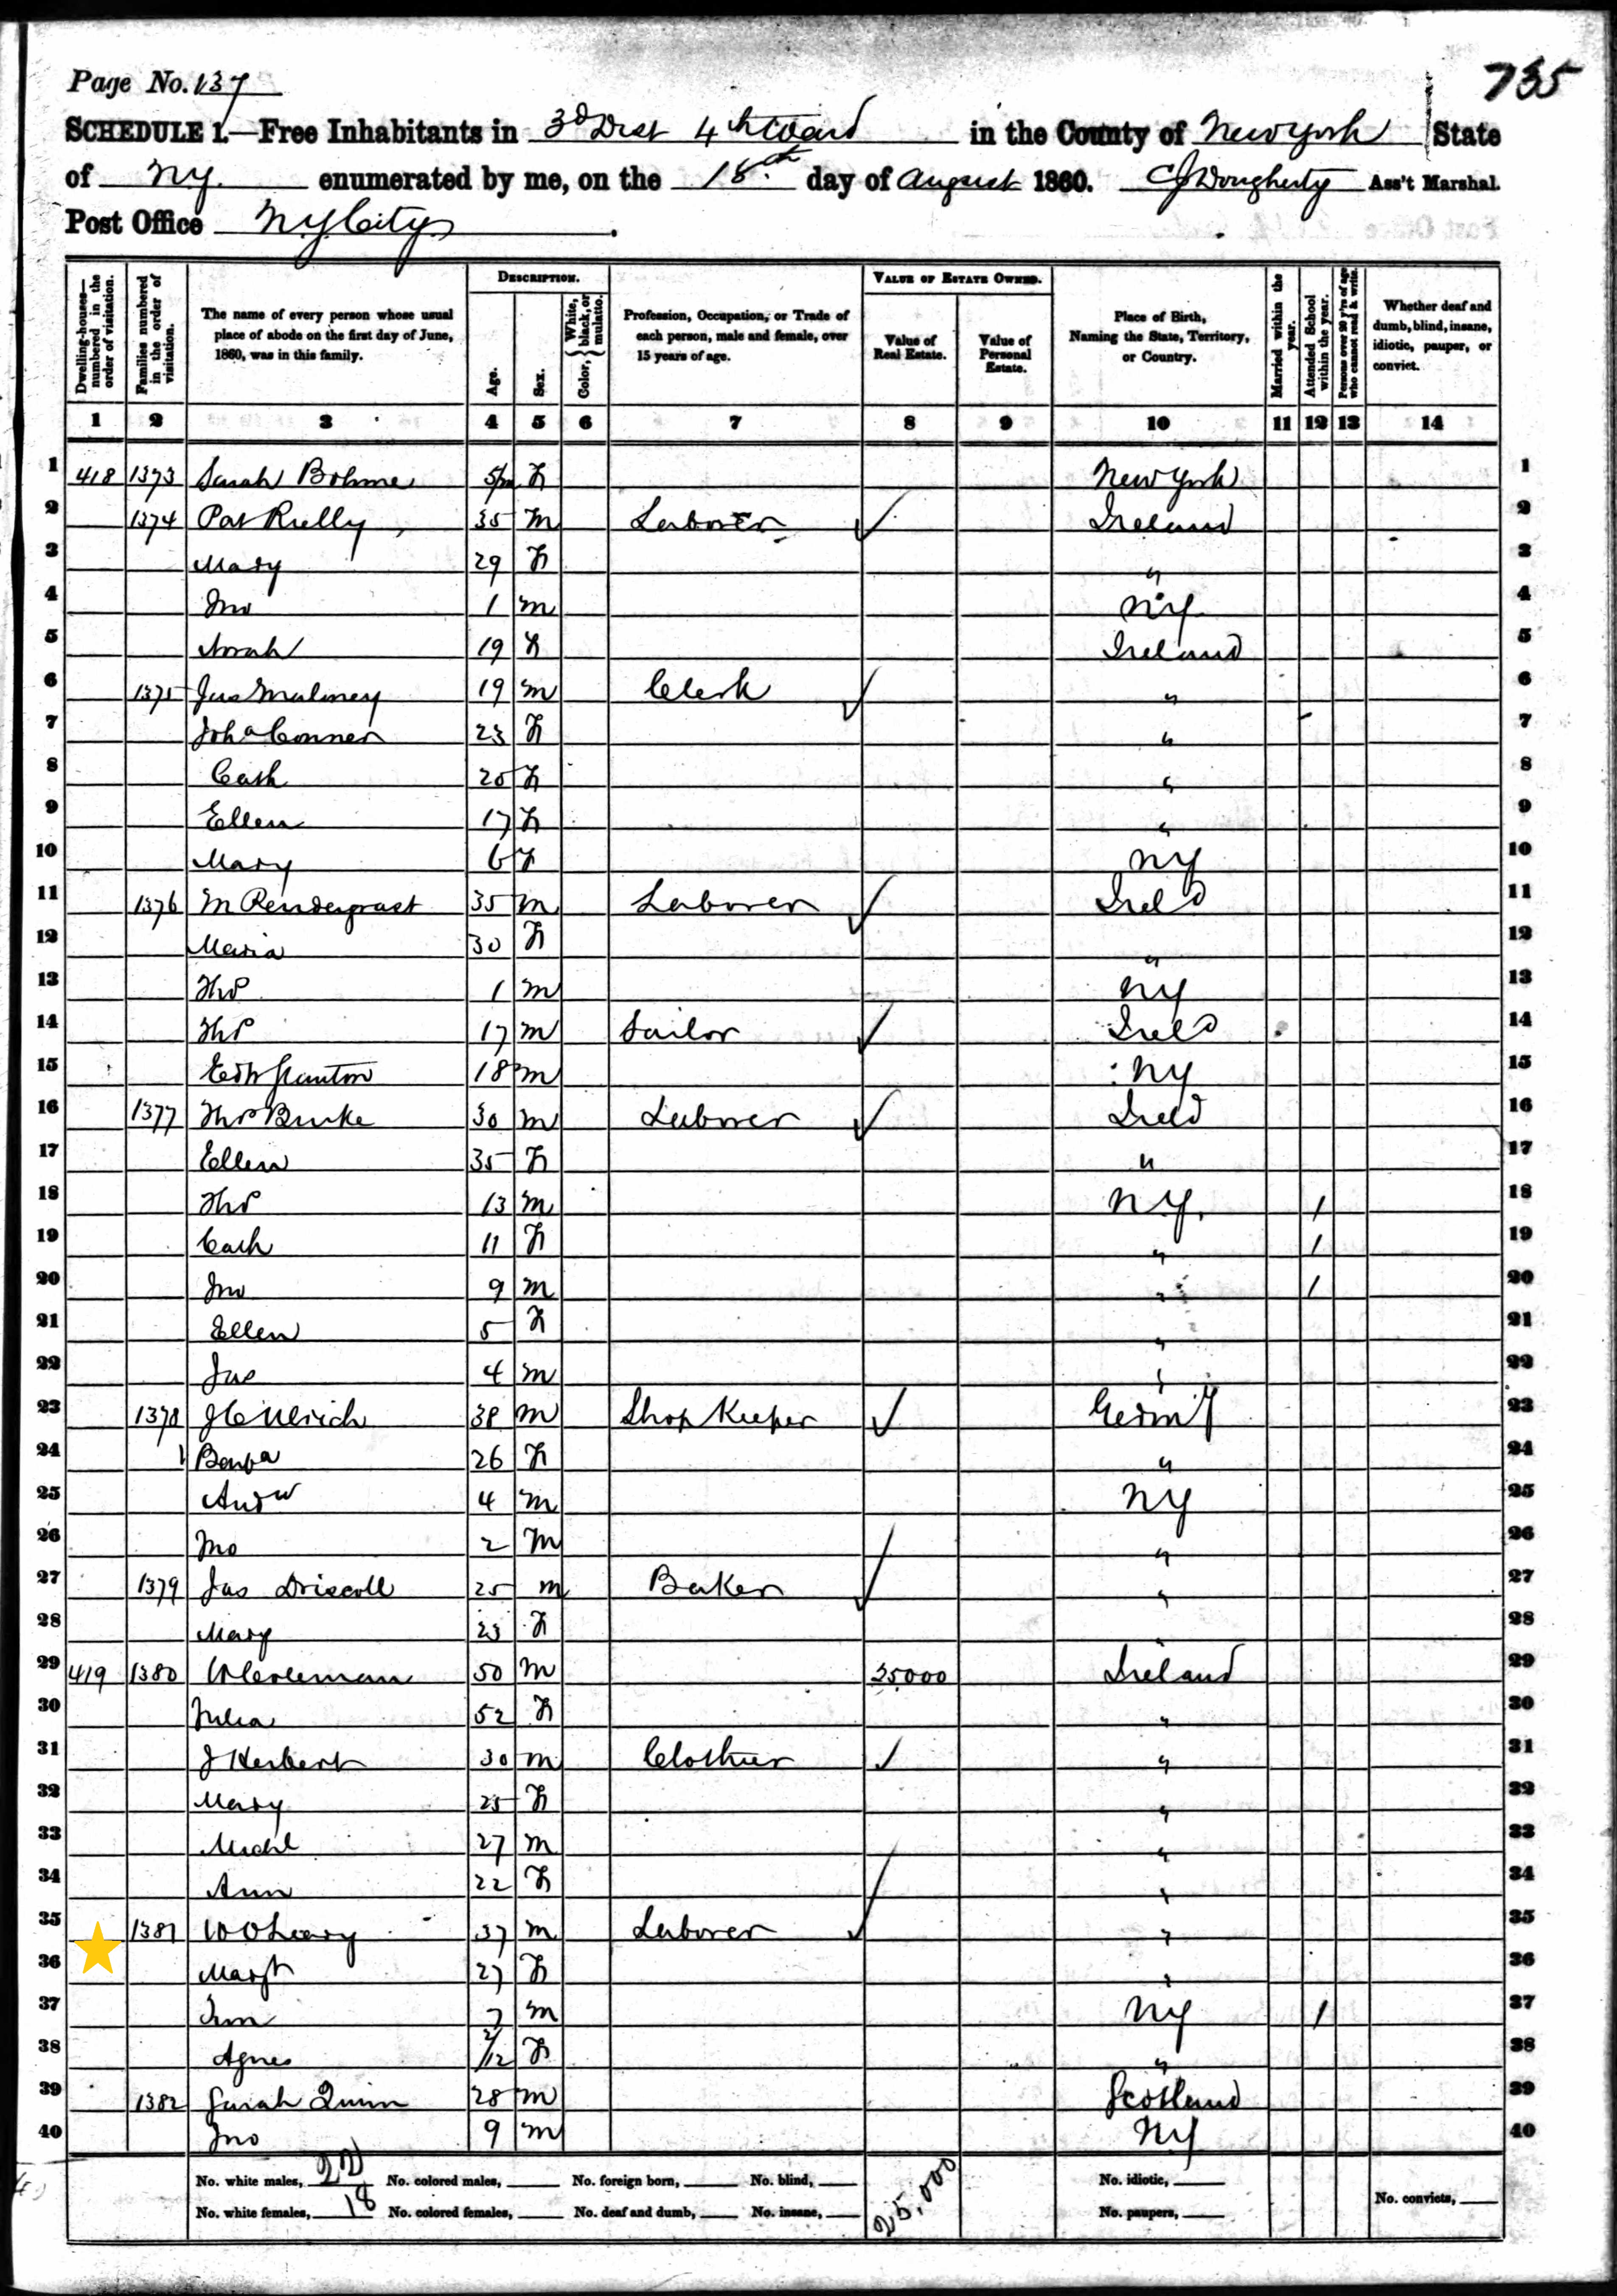 Page No. 137
735
SCHEDULE 1.—Free Inhabitants in 3d Dist 4th Ward in the County of New York State
of N.Y. enumerated by me, on the 18th day of August 1860. CJ Dougherty Ass't Marshal.
Post Office N.Y. City.
Dwelling-houses—numbered in the order of visitation.
Families numbered in the order of visitation.
The name of every person whose usual place of abode on the first day of June, 1860, was in this family.
DESCRIPTION.
Age.
Sex.
Color, { White, black, or mulatto.
Profession, Occupation, or Trade of each person, male and female, over 15 years of age.
VALUE OF ESTATE OWNED.
Value of Real Estate.
Value of Personal Estate.
Place of Birth, Naming the State, Territory, or Country.
Married within the year.
Attended School within the year.
Persons over 20 y'rs of age who cannot read & write.
Whether deaf and dumb, blind, insane, idiotic, pauper, or convict.
1 2 3 4 5 6 7 8 9 10 11 12 13 14
1 418 1373 Sarah Bohme 5/m F New York 1
2 1374 Pat Rielly 35 m Laborer Ireland 2
3 Mary 29 F " 3
4 Jno 1 m NY 4
5 Norah 19 F Ireland 5
6 1375 Jas Maloney 19 m Clerk " 6
7 Joha Conner 23 F " 7
8 Cath 20 F " 8
9 Ellen 17 F " 9
10 Mary 6 F NY 10
11 1376 M Pendergrast 35 m Laborer Ireld 11
12 Maria 30 F " 12
13 Thos 1 m NY 13
14 Thos 17 m Sailor Ireld 14
15 Edw Stanton 18 m NY 15
16 1377 Thos Burke 30 m Laborer Ireld 16
17 Ellen 35 F " 17
18 Thos 13 m NY. / 18
19 Cath 11 F " / 19
20 Jno 9 m " / 20
21 Ellen 5 F " 21
22 Jas 4 m " 22
23 1378 J C Ulrich 38 m Shop Keeper Germy 23
24 Barba 26 F " 24
25 Andw 4 m NY 25
26 Jno 2 m " 26
27 1379 Jas Driscoll 25 m Baker " 27
28 Mary 23 F " 28
29 419 1380 W Coleman 50 m 25000 Ireland 29
30 Julia 52 F " 30
31 J Herbert 30 m Clothier " 31
32 Mary 25 F " 32
33 Michl 27 m " 33
34 Ann 22 F " 34
35 1381 W O Leary 37 m Laborer " 35
36 Margt 27 F " 36
37 Tim 7 m NY / 37
38 Agnes 2/12 F " 38
39 1382 Sarah Quinn 28 m Scotland 39
40 Jno 9 m NY 40
No. white males, 22 No. colored males, No. foreign born, No. blind, 25,000 No. idiotic,
No. white females, 18 No. colored females, No. deaf and dumb, No. insane, No. paupers, No. convicts,